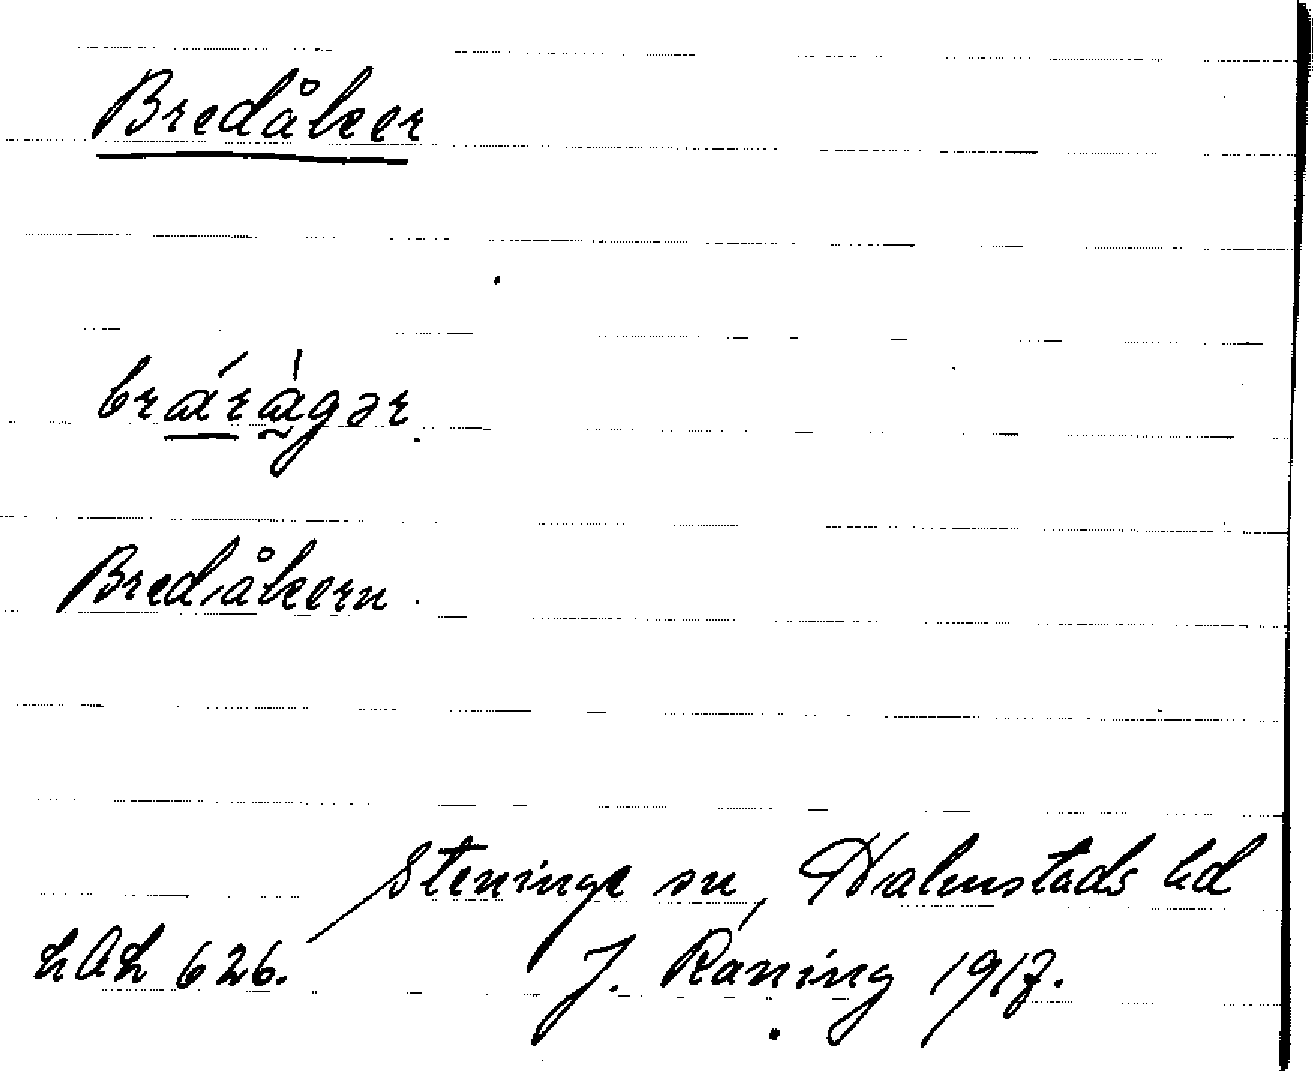 Bredåker
brárágər
Bredåkern
Steninge sn, Halmstads hd
626.
J. Ráning 1917.